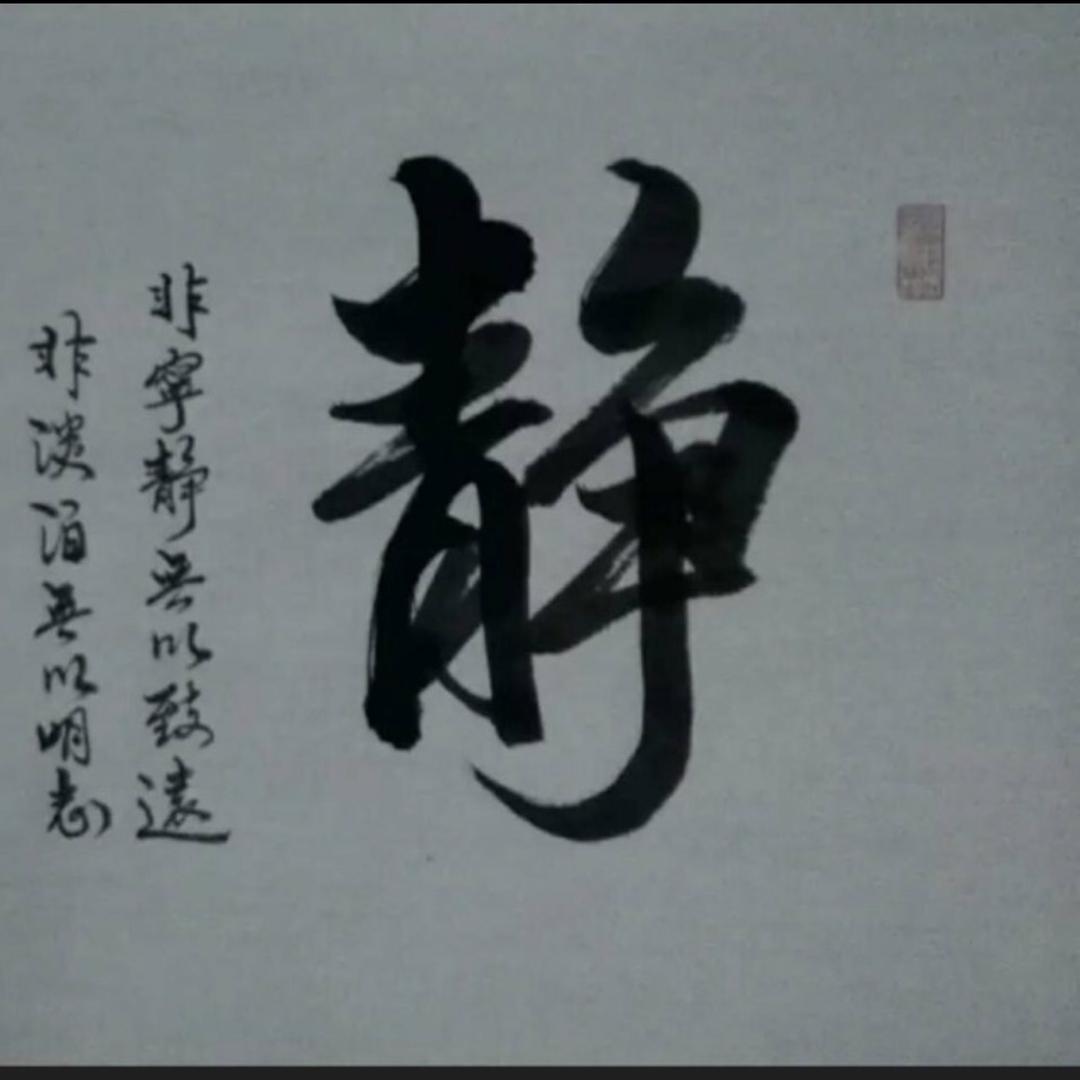 静
非寧靜無以致遠
非淡泊無以明志